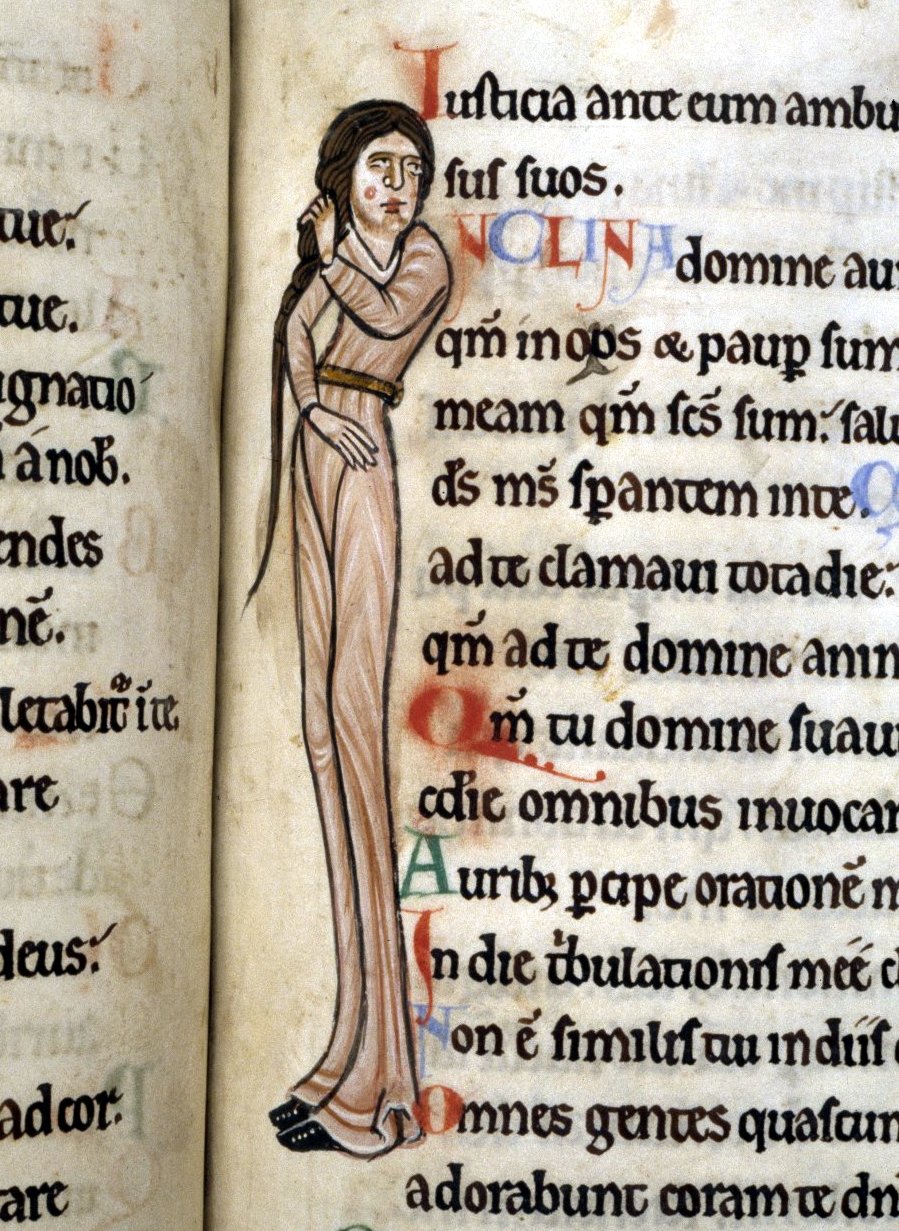 tue:
tue.
ignatio
a nob̅.
endes
nē.
letabit̅ i te
are
deus:
ad cor:
tare
Iusticia ante eum ambu
sus suos.
INCLINA domine aur
qm̅ inops & paup̲ sum
meam qm̅ sc̅s sum: salu
d̅s m̅s sp̲antem in te. Q
ad te clamaui tota die:
qm̅ ad te domine anim
Qm̅ tu domine suaui
c̅die omnibus inuocan
Aurib; p̲cipe orationē m
In die t̅bulationis meē c
Non ē similis tui in diis
Omnes gentes quascum
adorabunt coram te dn